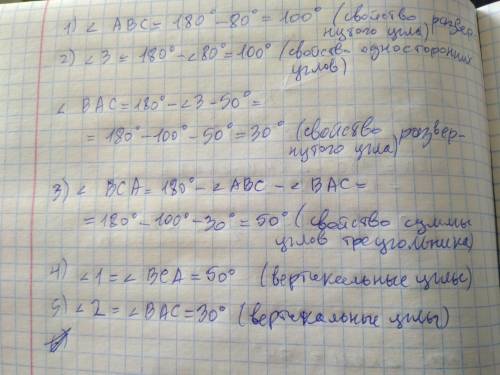 1) ∠ ABC = 180° - 80° = 100° (свойство развер-
нутого угла)
2) ∠3 = 180° - ∠80° = 100° (свойств- односторонних
углов)
∠ BAC = 180° - ∠3 - 50° =
= 180° - 100° - 50° = 30° (свойство развер-
нутого угла)
3) ∠ BCA = 180° - ∠ABC - ∠BAC =
= 180° - 100° - 30° = 50° (свойство суммы
углов треугольника)
4) ∠1 = ∠BCA = 50° (вертикальные углы)
5) ∠2 = ∠BAC = 30° (вертикальные углы)